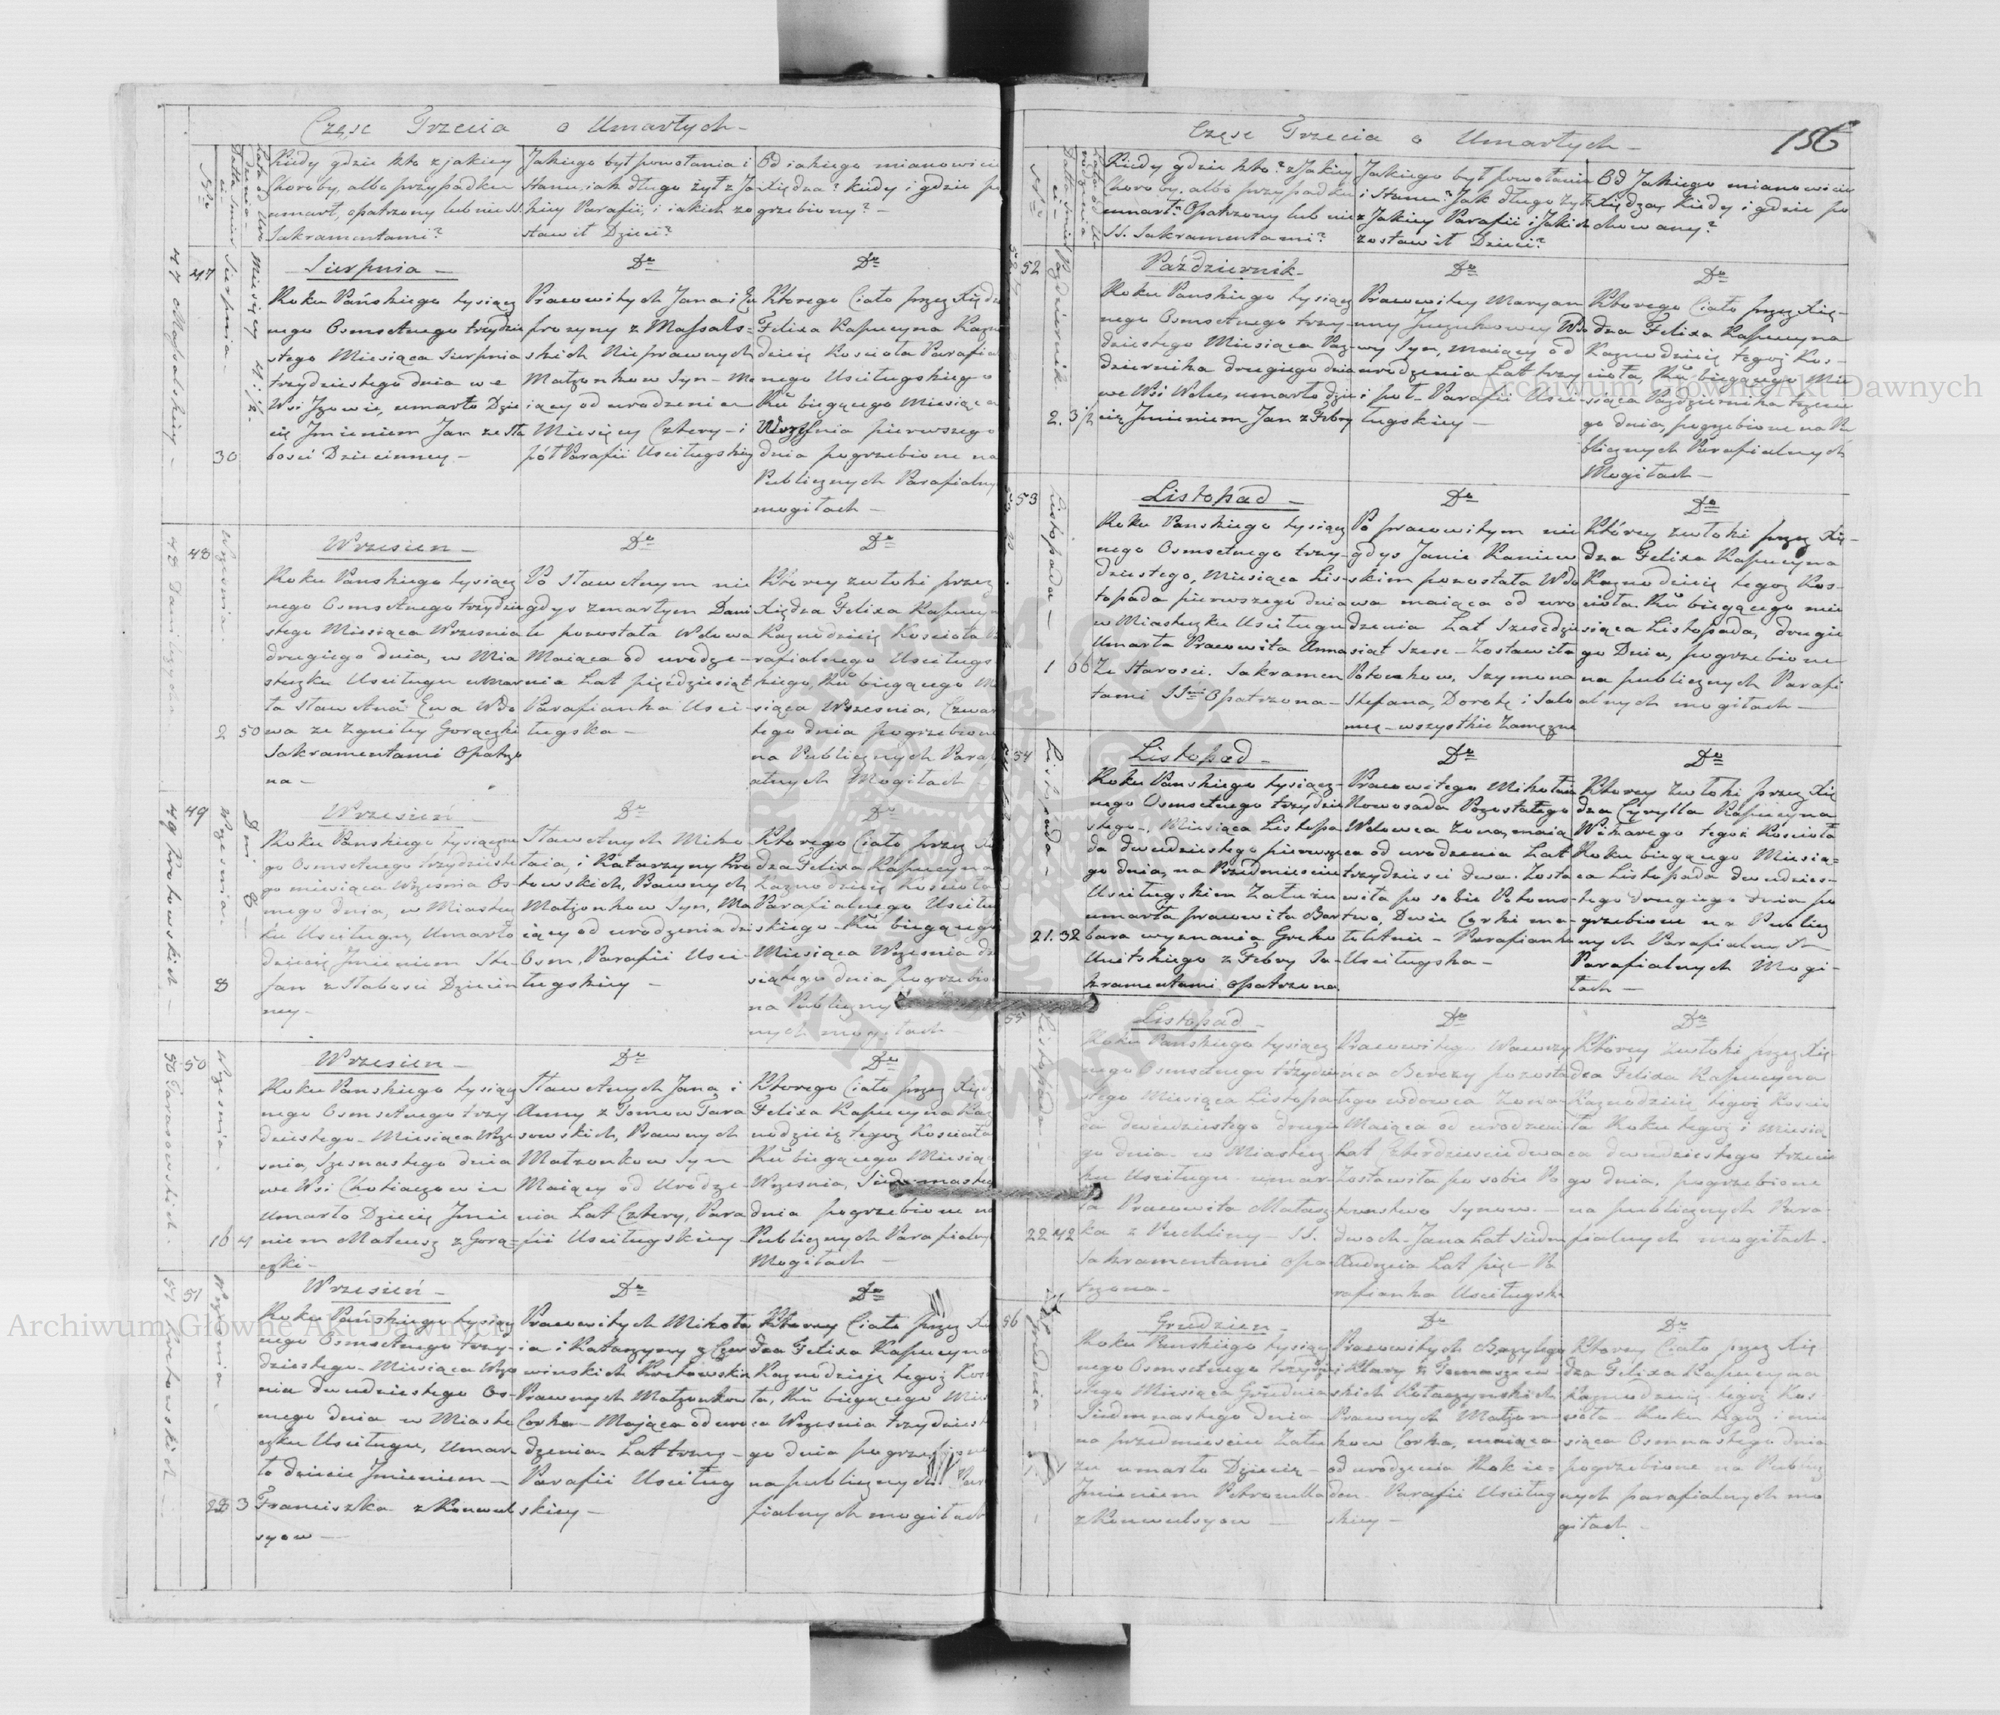 Częsc Trzecia o Umarłych
Kiedy gdzie kto z jakiey
Choroby, albo przypadku
umarł, opatrzony lub nie SS.
Sakramentami?
Jakiego był powołania i
Stanu, iak długo żył z Ja
kiey Parafii, i iakich zo
stawił Dzieci?
Od iakiego mianowicie
Xiędza? kiedy i gdzie po
grzebiony?
47
Sierpnia
30
Sierpnia
Roku Pańskiego tysiącz
nego Osmsetnego trzydzie
stego Miesiąca Sierpnia
trzydziestego dnia we
Wsi Izowie, umarło Dzie
cię Imieniem Jan ze sła
bosci Dziecinney
Do
Pracowitych Jana i Eu
frozyny z Massals=
skich Nieprawnych
Małzonkow Syn Ma
iący od urodzenia
Miesięcy Cztery i
pół Parafii Usciługskiey
Do
Ktorego Ciało przez Xiędza
Felixa Kapucyna Kazno
dzieię Kosciola Parafial
nego Usciługskiego
Ru biegącego Miesiąca
Września pierwszego
dnia pogrzebione na
Publicznych Parafialny
mogiłach
48
Wrzesnia
2 50
Wrzesien
Roku Pańskiego tysiącz
nego Osmsetnego trzydzie
stego Miesiąca Wrzesnia
drugiego dnia, w Mia
steczku Usciługu umar
ła Sławetna Ewa Wdo
wa ze zgniłey Gorączki
Sakramentami Opatrzo
na
Do
Po Sławetnym nie
gdys zmarłym Dani
le pozostała Wdowa
Maiąca od urodze
nia Lat pięcdziesiąt
Parafianka Usci
ługska
Do
Ktorey zwłoki przez
Xiędza Felixa Kapucyna
Kaznodzieię Kosciola Pa
rafialnego Usciługs
kiego, Ru biegącego Mie
siąca Wrzesnia, Czwar
tego dnia pogrzebione
na Publicznych Parafi
alnych Mogiłach
49
Wrzesnia
8
Dni 8
Wrzesien
Roku Pańskiego tysiączne
go Osmsetnego trzydzieste
go miesiąca Wrzesnia Os
mego dnia, w Miastecz
ku Usciługu, Umarło
dziecię Imieniem Ste
fan z słabosci Dziecin
ney
Do
Sławetnych Miko
łaia, i Katarzyny Kro
towskich, Prawnych
Małzonkow Syn, Ma
iący od urodzenia dni
Osm, Parafii Usci
ługskiey
Do
Ktorego Ciało przez Xię
dza Felixa Kapucyna
Kaznodzieię Kosciola
Parafialnego Usciług
skiego Ru biegącego
Miesiąca Wrzesnia dzie
siątego dnia pogrzebio
na Publiczny
nych mogiłach
50
Wrzesnia
16 4
Wrzesien
Roku Pańskiego tysiącz
nego Osmsetnego trzy
dziestego Miesiąca Wrze
snia, Szesnastego dnia
we Wsi Chotiaczowie
Umarło Dziecię Imie
niem Mateusz z Gorą=
czki
Do
Sławetnych Jana i
Anny z Tomow Tara
sowskich, Prawnych
Małzonkow Syn
Maiący od Urodze
nia Lat Cztery, Para
fii Usciługskiey
Do
Ktorego Ciało przez Xię
Felixa Kapucyna Kaz
nodzieię tegoz Kosciola
Ru biegącego Miesiąca
Wrzesnia, Siedmnastego
dnia pogrzebione na
Publicznych Parafialny
Mogiłach
51
Wrzesnia
28 3
Wrzesień
Roku Pańskiego tysiącz
nego Osmsetnego trzy
dziestego Miesiąca Wrze
snia dwudziestego Os
mego dnia w Miaste
czku Usciługu, Umar
ło dziecie Imieniem
Franciszka z Konwul
syow
Do
Pracowitych Mikoła
ia i Katarzyny z Czer
winskich Krotowskich
Prawnych Małzonkow
Corka Maiąca od uro
dzenia Lat trzy
Parafii Usciług
skiey
Do
Ktorey Ciało przez Xię
dza Felixa Kapucyna
Kaznodzieię tegoz Kos
ła, Ru biegącego Mies
ca Wrzesnia trzydzieste
go dnia pogrzebione
na publicznych Par
fialnych mogiłach
Częsc Trzecia o Umarłych
156
Kiedy gdzie kto? z Jakiey
Choroby, albo przypadku
umarł? Opatrzony lub nie
SS. Sakramentami?
Jakiego był powołania
i Stanu? Jak długo żył
z Jakiey Parafii i Jakich
zostawił Dzieci?
Od Jakiego mianowicie
Xiędza, kiedy i gdzie po
chowany?
52
Pazdziernik
2. 3 1/2
Październik
Roku Panskiego tysiącz
nego Osmsetnego trzy
dziestego Miesiąca Paz
dziernika drugiego dnia
we Wsi Wolce, umarło dzie
cię Imieniem Jan z Febry
Do
Pracowitey Maryan
ny Wdo
wy Syn, maiący od
urodzenia Lat trzy
i puł Parafii Usci
ługskiey
Do
Ktorego Ciało przez Xię
dza Felixa Kapucyna
Kaznodzieię tegoż Kos
ciola, Ru biegącego Mie
siąca Pazdziernika trzecie
go dnia, pogrzebione na Pu
blicznych Parafialnych
Mogiłach
53
Listopada
1 66
Listopad
Roku Panskiego tysiącz
nego Osmsetnego trzy
dziestego, Miesiąca Lis
topada pierwszego dnia
w Miasteczku Usciługu
Umarła Pracowita Anna
Ze Starosci. Sakramen
tami SSmi Opatrzona
Do
Po pracowitym nie
gdys Janie Kaniew
skim pozostała Wdo
wa maiąca od uro
dzenia Lat Szescdzie
siąt Szesc Zostawiła
Potomkow, Szymona
Stefana, Dorotę i Salo
meę wszystkie Zamęzne
Do
Którey zwłoki przez Xię
dza Felixa Kapucyna
Kaznodzieię tegoz Kos
ciola. Ru biegącego mie
siąca Listopada, drugie
go Dnia, pogrzebione
na publicznych Parafi
alnych mogiłach
54
Listopada
21. 32
Listopad
Roku Pańskiego tysiącz
nego Osmsetnego trzydzie
stego, Miesiąca Listopa
da dwudziestego pierwsze
go dnia, na Przedmiesciu
Usciługskiem Załuziu
umarła pracowita Bar
bara wyznania Greko
Unitskiego z Febry Sa
kramentami opatrzona
Do
Pracowitego Mikołaia
Nowosada Pozostałego
Wdowca Zona, maią
ca od urodzenia Lat
trzydziesci dwa. Zosta
wiła po sobie Potoms
two, Dwie Corki ma
łoletnie Parafianka
Usciługska
Do
Ktorey Zwłoki przez Xię
dza Cyrylla Kapucyna
Wikarego tegoż Kosciola
Roku biegącego Miesią
ca Listopada dwudzies
tego drugiego dnia po
grzebione na Publicz
nych Parafialne
Parafialnych Mogi
łach
55
Listopada
22 42
Listopad
Roku Pańskiego tysiącz
nego Osmsetnego trzydzie
stego Miesiąca Listopa
da dwudziestego drugie
go dnia w Miastecz
ku Usciługu umar
ła Pracowita Matasz
ka z Puchliny SS.
Sakramentami opa
trzona
Do
Pracowitego Wawrzy
nca Berezy pozosta
łego wdowca Zona
Maiąca od urodzenia
Lat Czterdziesci dwa
Zostawiła po sobie Po
tomstwo Synow.
dwoch Jana Lat Siedm
Andrzeia Lat pięc Pa
rafianka Usciługska
Do
Ktorey zwłoki przez Xię
dza Felixa Kapucyna
Kaznodzieię tegoż Kosciо
ła Roku tegoż i miesią
ca dwudziestego trzecie
go dnia, pogrzebione
na publicznych Para
fialnych mogiłach
56
Grudnia
Grudzien
Roku Panskiego tysiącz
nego Osmsetnego trzydzie
stego Miesiąca Grudnia
Siedmnastego dnia
na przedmiesciu Zału
ziu umarło Dziecię
Imieniem Petronella
z Konwulsyow
Do
Pracowitych Bazylego
i Klary z Tomaszew
skich
Prawnych Małzon
kow Corka, maiąca
od urodzenia Rok ie
den Parafii Usciług
skiey
Do
Ktorey Ciało przez Xię
dza Felixa Kapucyna
Kaznodzieię tegoz Kos
ciola Roku tegoz i mie
siąca Osmnastego dnia
pogrzebione na Publicz
nych parafialnych mo
giłach
Archiwum Główne Akt Dawnych
Archiwum Główne Akt Dawnych